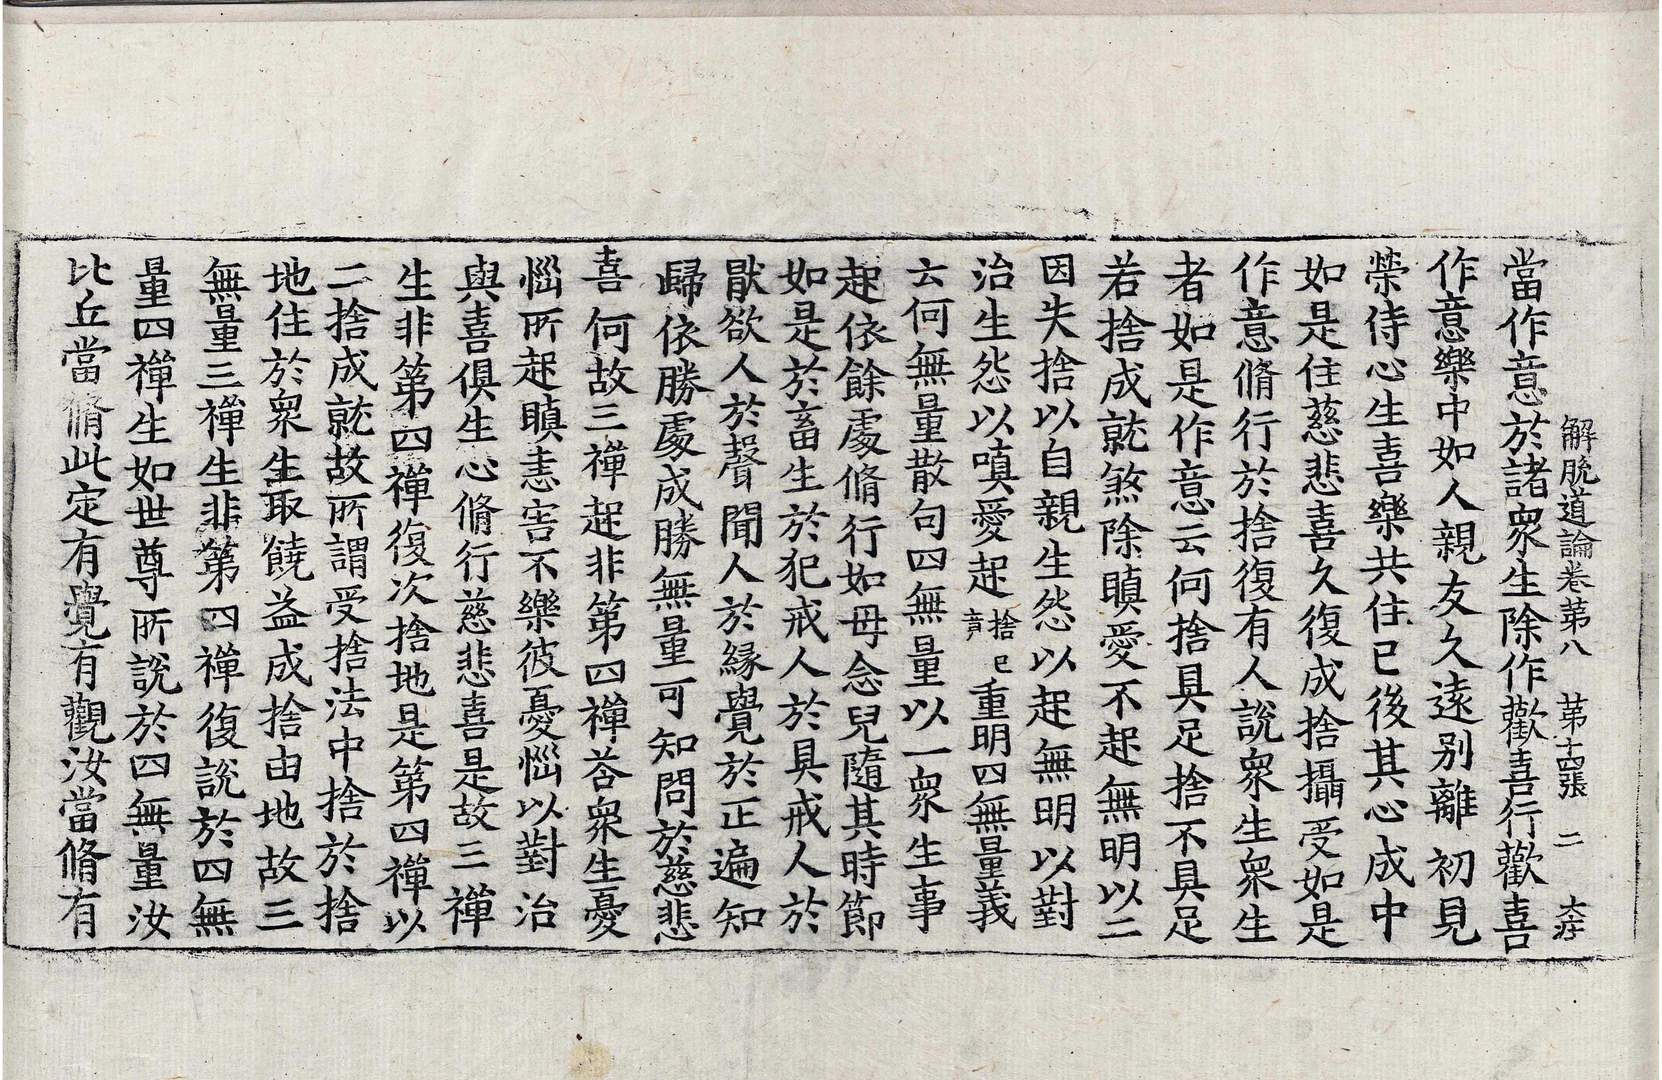 解脫道論卷第八　第十四張　二
當作意於諸衆生除作歡喜行歡喜
作意樂中如人親友久遠别離初見
榮侍心生喜樂共住已後其心成中
如是住慈悲喜久復成捨攝受如是
作意脩行於捨復有人說衆生衆生
者如是作意云何捨具足捨不具足
若捨成就煞除瞋愛不起無明以二
因失捨以自親生怨以起無明以對
治生怨以嗔愛起捨已竟重明四無量義
云何無量散句四無量以一衆生事
起依餘處脩行如母念兒隨其時節
如是於畜生於犯戒人於具戒人於
猒欲人於聲聞人於緣覺於正遍知
歸依勝處成勝無量可知問於慈悲
喜何故三禪起非第四禪荅衆生憂
惱所起瞋恚害不樂彼憂惱以對治
與喜俱生心脩行慈悲喜是故三禪
生非第四禪復次捨地是第四禪以
二捨成就故所謂受捨法中捨於捨
地住於衆生取饒益成捨由地故三
無量三禪生非第四禪復說於四無
量四禪生如世尊所說於四無量汝
比丘當脩此定有覺有觀汝當脩有